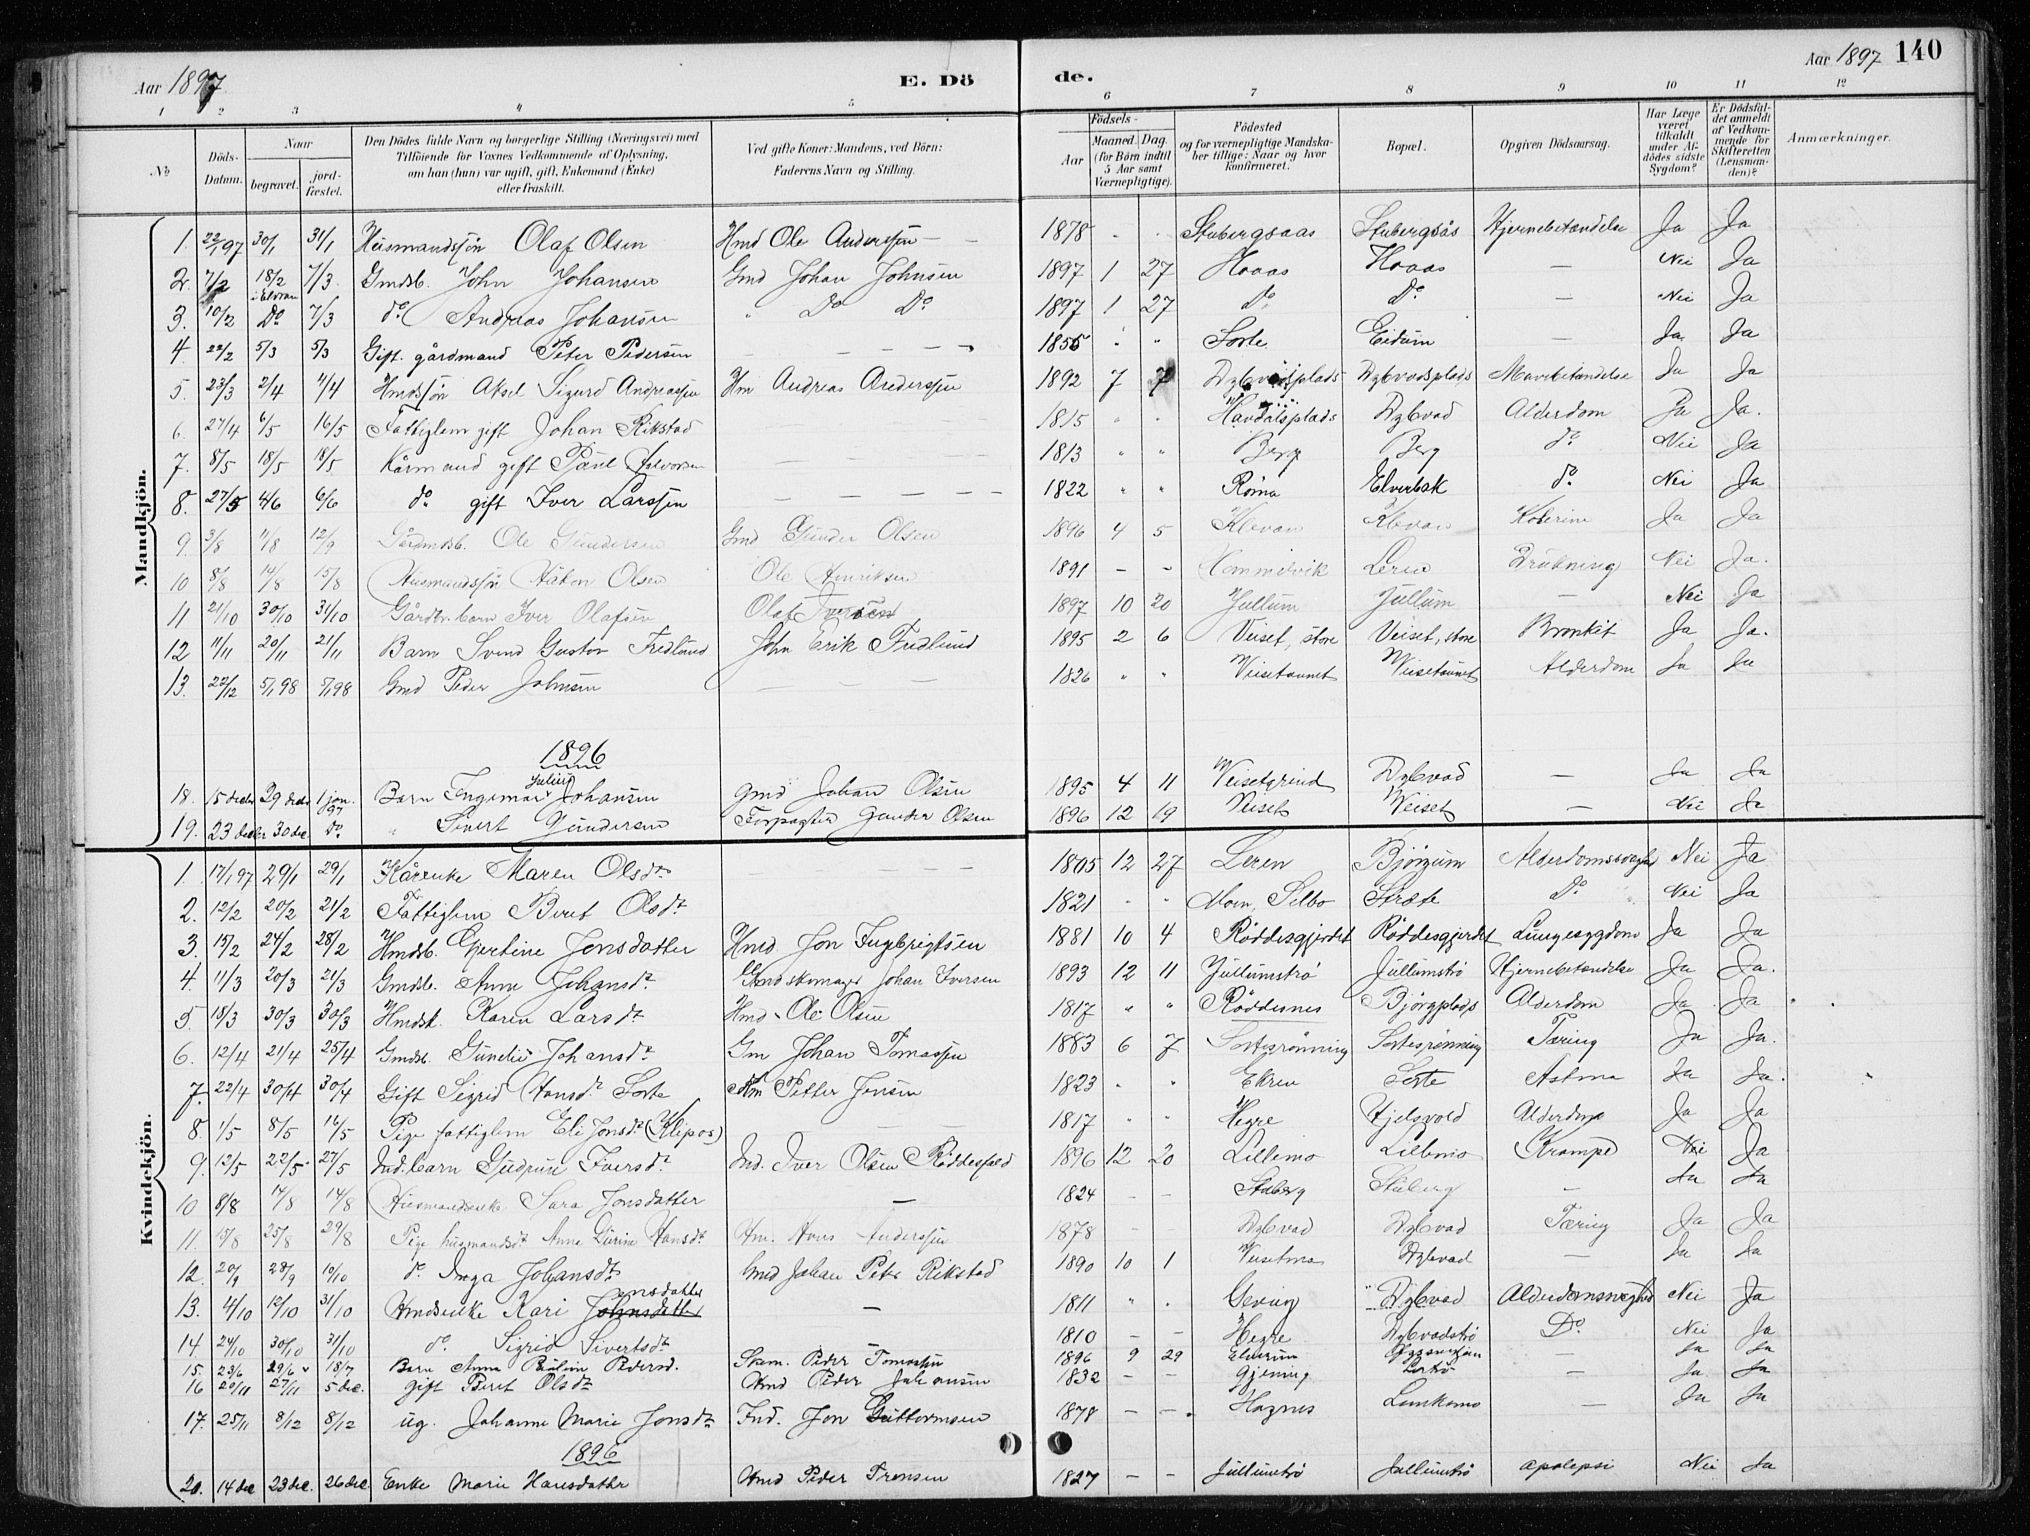 Aar 1897. E. Dö de. Aar 1897 140
1 2 3 4 5 6 7 8 9 10 11 12
No Döds-Datum. Naar begravet. jord-fæstet. Den Dödes fulde Navn og borgerlige Stilling (Næringsvei) med Tilföiende for Voxnes Vedkommende af Oplysning, om han (hun) var ugift, gift, Enkemand (Enke) eller fraskilt. Ved gifte Koner: Mandens, ved Börn: Faderens Navn og Stilling. Födsels- Aar Maaned. Dag. (for Börn indtil 5 Aar samt Værnepligtige). Födested og for værnepligtige Mandskaber tillige: Naar og hvor konfirmeret. Bopæl. Opgiven Dödsaarsag. Har Læge været tilkaldt under Afdödes sidste Sygdom? Er Dödsfaldet anmeldt af Vedkommende for Skifteretten (Lensmanden)? Anmærkninger.
Mandkjön.
1. 22/1 97 30/1 31/1 Husmandssön Olaf Olsen Hmd Ole Anderssen 1878 Stubergsaas Stubergsås Hjernebetændelse Ja Ja
2. 7/2 18/2 i Elvran 7/3 Gmdsb. John Johansen Gmd Johan Johnsen 1897 1 27 Hoaas Hoaas — Nei Ja
3. 10/2 Do 7/3 do Andreas Johansen " Do Do 1897 1 27 Do Do — Nei Ja
4 22/2 5/3 5/3 Gift. gårdmand Peter Pedersen 1855 " " Sorte Eidum — Ja Ja
5 23/3 2/4 4/4 Hmdssön Aksel Sigurd Andreassen Hm Andreas Anderssen 1892 7 7 Dybvadsplads Dybvadsplads Mavebetændelse Ja Ja
6. 27/4 6/5 16/5 Fattiglem gift Johan Rikstad 1815 " " Havdalsplads Dybvad Alderdom Ja Ja.
7. 8/5 18/5 18/5 Kårmand gift Paul Halvorsen 1813 " " Berg Berg do Nei Ja
8. 27/5 4/6 6/6 do gift Iver Larssen 1822 " " Röma Elverbak do Nei Ja
9. 3/8 11/8 12/9 Gårdmdsb. Ole Gundersen Gmd Gunder Olsen 1896 4 5 Klevan Klevan Kolerine Ja Ja
10 8/8 14/8 15/8 Husmandssön Håkon Olsen Ole Henriksen 1891 – – Hommelvik Leren Drukning Nei Ja.
11 21/10 30/10 31/10 Gårdbr.barn Iver Olafsen Olaf Iversen 1897 10 20 Jullum Jullum — Nei Ja
12 11/11 20/11 21/11 Barn Svend Gustav Fredlund John Erik Fredlund 1895 2 6 Veiset, store Veiset, store Bronkit Ja Ja.
13. 22/12 5/1 98 5/1 98 Gmd Peder Johnsen 1826 " " Veisetaunet Veisetaunet Alderdom Ja Ja
1896
18. 15 decbr 29 decbr 1 jan. 97 Barn Ingemar Julius Johansen Gmd Johan Olsen 1895 4 11 Veisetgrind Dybvad — Ja Ja
19. 23 decbr 30 dec. do " Sivert Gundersen Forpagter Gunder Olsen 1896 12 19 Veiset Veiset — Nei Ja
Kvindekjön.
1. 17/1 97 29/1 29/1 Kårenke Maren Olsdtr 1805 12 27 Leren Bjørgum Alderdomssvaghed Nei Ja
2. 12/2 20/2 21/2 Fattiglem Beret Olsdtr 1821 " " Moen, Selbo Stræte Do Nei Ja
3. 15/2 24/2 28/2 Hmdsb. Gjertine Jonsdatter Hmd Jon Ingbrigtsen 1881 10 4 Röddesgjerdet Röddesgjerdet Lungesygdom Ja Ja
4. 11/3 20/3 21/3 Gmdb. Anne Johansdtr Gmd skomager Johan Iversen 1893 12 11 Jullumstrø Jullumstrø Hjernebetændelse Ja Ja.
5 18/3 30/3 30/3 Hmdsk. Karen Larsdtr Hmd Ole Olsen 1817 " " Röddesnes Bjørgplads Alderdom Ja Ja
6. 12/4 21/4 25/4 Gmdsb. Gunelie Johansdtr Gm Johan Tomassen 1883 6 7 Sortesrønning Sortesrønning Tæring Ja Ja.
7. 22/4 30/4 30/4 Gift Sigrid Hansdtr Sorte Hm Petter Jonsen 1823 " " Ekren Sorte Astma Ja Ja.
8. 1/5 8/5 16/5 Pige fattiglem Eli Jonsdtr (Klipos) 1817 " " Hegre Hjelsvold Alderdom Ja Ja
9. 12/5 22/5 27/5 Ind.barn Gudrun Iversdtr Ind. Iver Olsen Röddesfald 1896 12 20 Lillemo Lillemo Krampe Nei Ja
10 8/8 14/8 14/8 Husmandsenke Sara Jonsdatter — 1824 – – Stuberg Stuberg — Ja Ja
11. 15/8 25/8 29/8 Pige husmandsdtr Anne Lurine Hansdtr Hm. Hans Anderssen 1878 – – Dybvad Dybvad Tæring Ja Ja
12. 20/9 28/9 10/10 do Inga Johansdtr Gmd Johan Peter Rikstad 1890 10 1 Veisetmo Dybvad — Ja Ja
13. 4/10 12/10 31/10 Hmdsenke Kari Johnsdatter ensdatter — 1811 " " Geving Dybvad Alderdomssvaghed Nei Ja
14 24/10 30/10 31/10 do Sigrid Sivertsdtr — 1810 – – Hegre Dybvadstrø Do. Nei Ja
15. 23/6 29/6 18/7 Barn Anna Pauline Pedersd. Skom. Peder Tomassen 1896 9 29 Elverum — Ja Ja
16 20/11 27/11 5 dec. gift Beret Olsdtr Hmd Peder Johansen 1832 – – Gjening — Ja Ja
17. 25/11 8/12 8/12 ug. Johanne Marie Jonsdtr Ind. Jon Guttormsen 1878 – – Hognes Lomkomo — Ja Ja
1896
20. 14 dec 23 dec. 26 dec Enke Marie Hansdatter Hmd Peder Trensen 1827 – – Jullumstrø Jullumstrø apolepsi Nei Ja